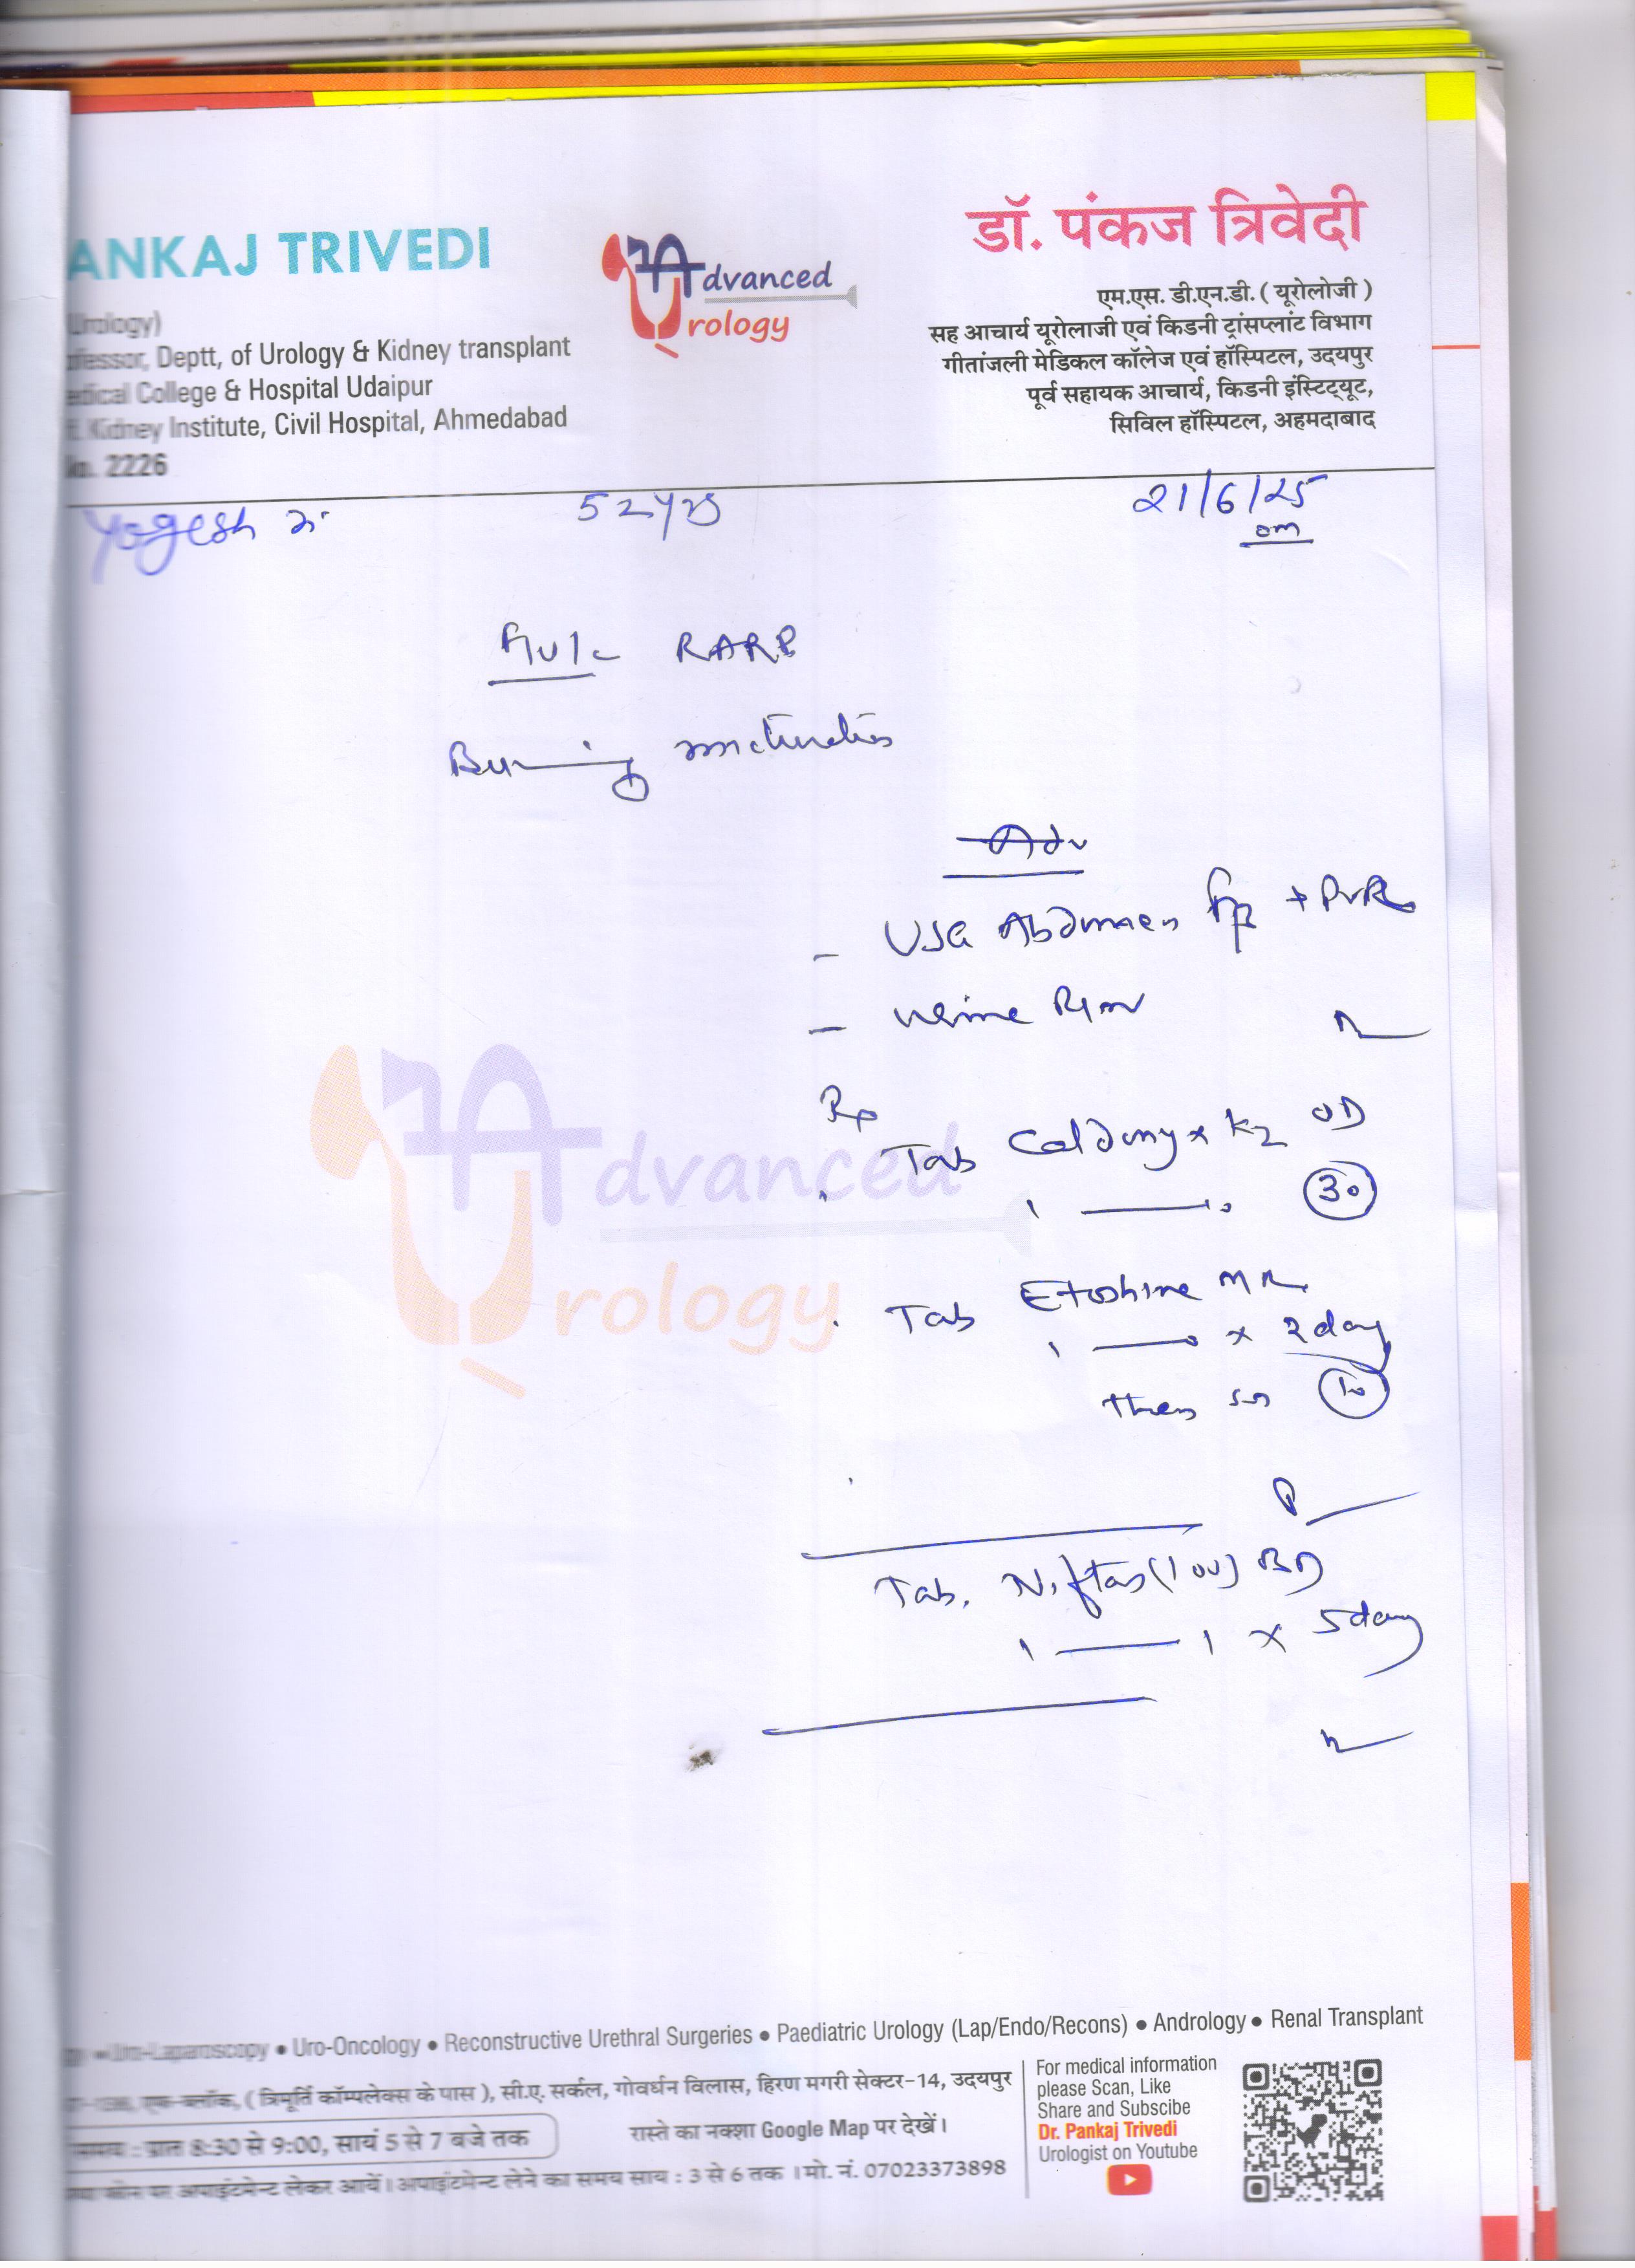 ANKAJ TRIVEDI
Urology)
ofessor, Deptt, of Urology & Kidney transplant
edical College & Hospital Udaipur
Kidney Institute, Civil Hospital, Ahmedabad
No. 2226
Advanced
Urology
डॉ. पंकज त्रिवेदी
एम.एस. डी.एन.डी. ( यूरोलोजी )
सह आचार्य यूरोलाजी एवं किडनी ट्रांसप्लांट विभाग
गीतांजली मेडिकल कॉलेज एवं हॉस्पिटल, उदयपुर
पूर्व सहायक आचार्य, किडनी इंस्टिट्यूट,
सिविल हॉस्पिटल, अहमदाबाद
Yogesh 52 yrs 21/6/25
RARP
Burning micturition
Adv
- USG Abdomen + PVR
- Urine R/m
Rp
Tab K2 OD
30
Tab Etoshine MR
1 —— x 2 day
then sos 10
Advanced
Urology
Tab. Niftas (100) BD
1 —— 1 x 5 day
Uro-Laparoscopy • Uro-Oncology • Reconstructive Urethral Surgeries • Paediatric Urology (Lap/Endo/Recons) • Andrology • Renal Transplant
एफ-ब्लॉक, ( त्रिमूर्ति कॉम्पलेक्स के पास ), सी.ए. सर्कल, गोवर्धन विलास, हिरण मगरी सेक्टर-14, उदयपुर
समय : प्रात 8:30 से 9:00, सायं 5 से 7 बजे तक
रास्ते का नक्शा Google Map पर देखें।
फोन पर अपाइंटमेन्ट लेकर आयें। अपाइंटमेन्ट लेने का समय साय : 3 से 6 तक । मो. नं. 07023373898
For medical information
please Scan, Like
Share and Subscibe
Dr. Pankaj Trivedi
Urologist on Youtube